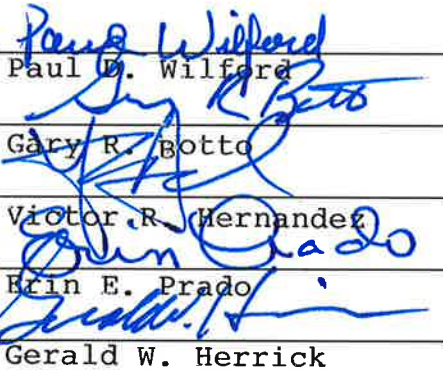 Paul Wilford
Paul D. Wilford
Gary R Botto
Gary R. Botto
Victor R. Hernandez
Erin Prado
Erin E. Prado
Gerald W. H
Gerald W. Herrick